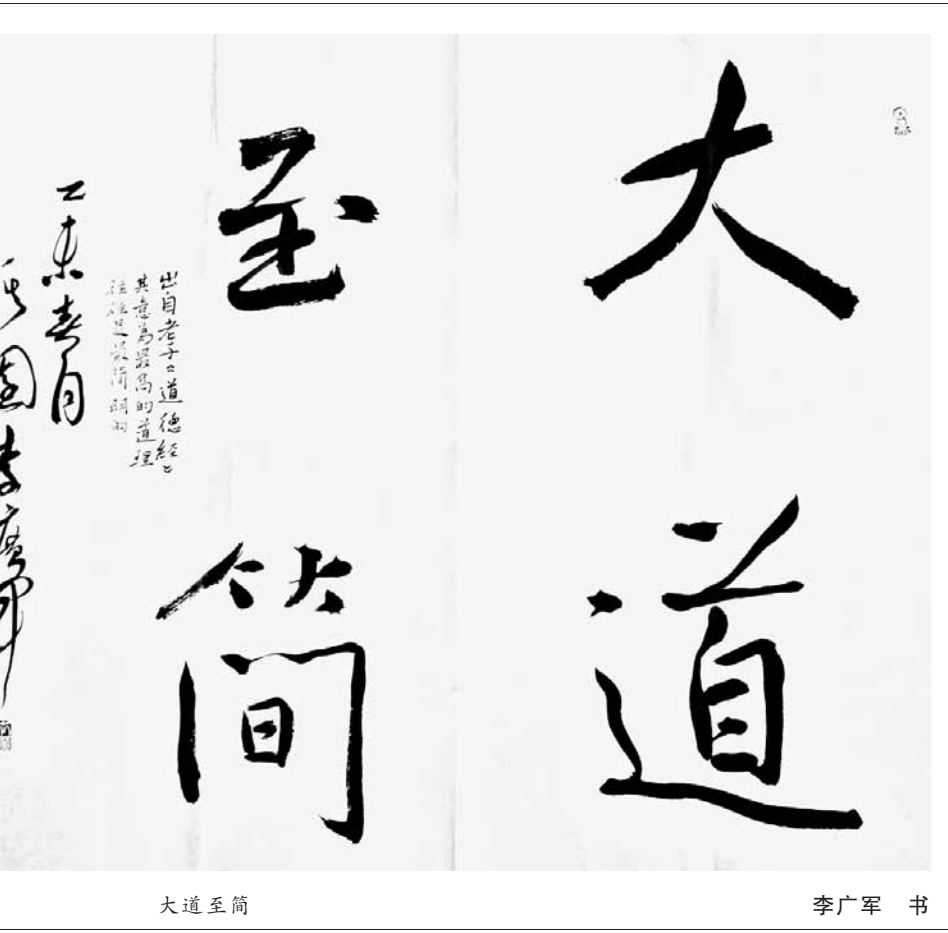 大道
至简
出自老子《道德經》
其意為最高的道理
往往是最简明的
乙未春月
園李廣軍
大道至简
李广军 书